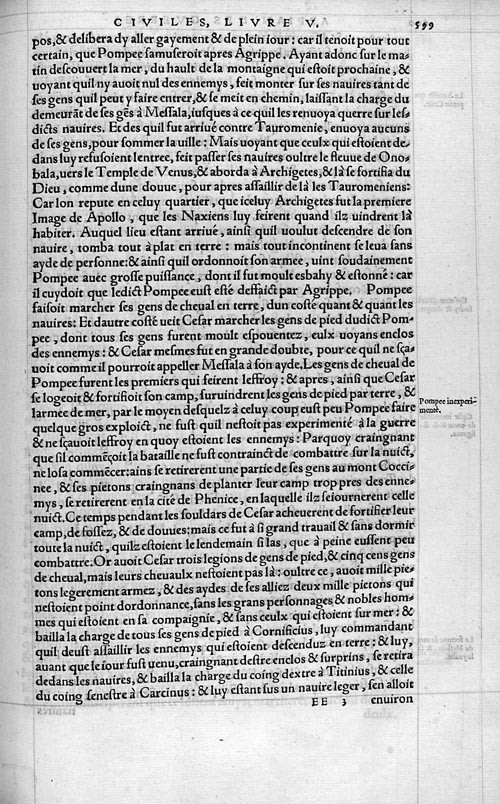 CIVILES, LIVRE V. 599
pos,& delibera dy aller gayement & de plein iour : car il tenoit pour tout
certain, que Pompee samuseroit apres Agrippe. Ayant adonc sur le ma-
tin descouuert la mer, du hault de la montaigne qui estoit prochaine, &
uoyant quil ny auoit nul des ennemys, feit monter sur ses nauires tant de
ses gens quil peut y faire entrer,& se meit en chemin, laissant la charge du
demeurãt de ses gẽs à Messala,iusques à ce quil les renuoya querre sur les-
dicts nauires. Et des quil fut arriué contre Tauromenie, enuoya aucuns
de ses gens,pour sommer la uille : Mais uoyant que ceulx qui estoient de-
dans luy refusoient lentree, feit passer ses nauires oultre le fleuue de Ono-
bala,uers le Temple de Venus,& aborda à Archigetes,& là se fortifia du
Dieu, comme dune douue, pour apres assaillir de là les Tauromeniens:
Car lon repute en celuy quartier, que iceluy Archigetes fut la premiere
Image de Apollo , que les Naxiens luy feirent quand ilz uindrent là
habiter. Auquel lieu estant arriué, ainsi quil uoulut descendre de son
nauire, tomba tout à plat en terre : mais tout incontinent se leua sans
ayde de personne:& ainsi quil ordonnoit son armee, uint soudainement
Pompee auec grosse puissance, dont il fut moult esbahy & estonné : car
il cuydoit que ledict Pompee eust esté deffaict par Agrippe. Pompee
faisoit marcher ses gens de cheual en terre, dun costé quant & quant les
nauires: Et dautre costé ueit Cesar marcher les gens de pied dudict Pom-
pee , dont tous ses gens furent moult espouentez, eulx uoyans enclos
des ennemys : & Cesar mesmes fut en grande doubte, pour ce quil ne sça-
uoit comme il pourroit appeller Messala à son ayde.Les gens de cheual de
Pompee furent les premiers qui feirent leffroy : & apres , ainsi que Cesar
se logeoit & fortifioit son camp, suruindrent les gens de pied par terre , &
larmee de mer, par le moyen desquelz à celuy coup eust peu Pompee faire
quelque gros exploict, ne fust quil nestoit pas experimenté à la guerre
& ne sçauoit leffroy en quoy estoient les ennemys : Parquoy craingnant
que sil commẽçoit la bataille ne fust contrainct de combattre sur la nuict,
ne losa commẽcer:ains se retirerent une partie de ses gens au mont Cocci-
nee , & ses pietons craingnans de planter leur camp trop pres des enne-
mys , se retirerent en la cité de Phenice, en laquelle ilz seiournerent celle
nuict.Ce temps pendant les souldars de Cesar acheuerent de fortifier leur
camp,de fossez, & de douues:mais ce fut à si grand trauail & sans dormir
toute la nuict, quilz estoient le lendemain si las, que à peine eussent peu
combattre.Or auoit Cesar trois legions de gens de pied,& cinq cens gens
de cheual,mais leurs cheuaulx nestoient pas là : oultre ce , auoit mille pie-
tons legerement armez , & des aydes de ses alliez deux mille pietons qui
nestoient point dordonnance,sans les grans personnages & nobles hom-
mes qui estoient en sa compaignie , & sans ceulx qui estoient sur mer : &
bailla la charge de tous ses gens de pied à Cornificius, luy commandant
quil deust assaillir les ennemys qui estoient descenduz en terre : & luy,
auant que le iour fust uenu,craingnant destre enclos & surprins, se retira
dedans les nauires, & bailla la charge du coing dextre à Titinius, & celle
du coing senestre à Carcinus : & luy estant sus un nauire leger , sen alloit
EE 3 enuiron
Pompee inexperi-
menté.